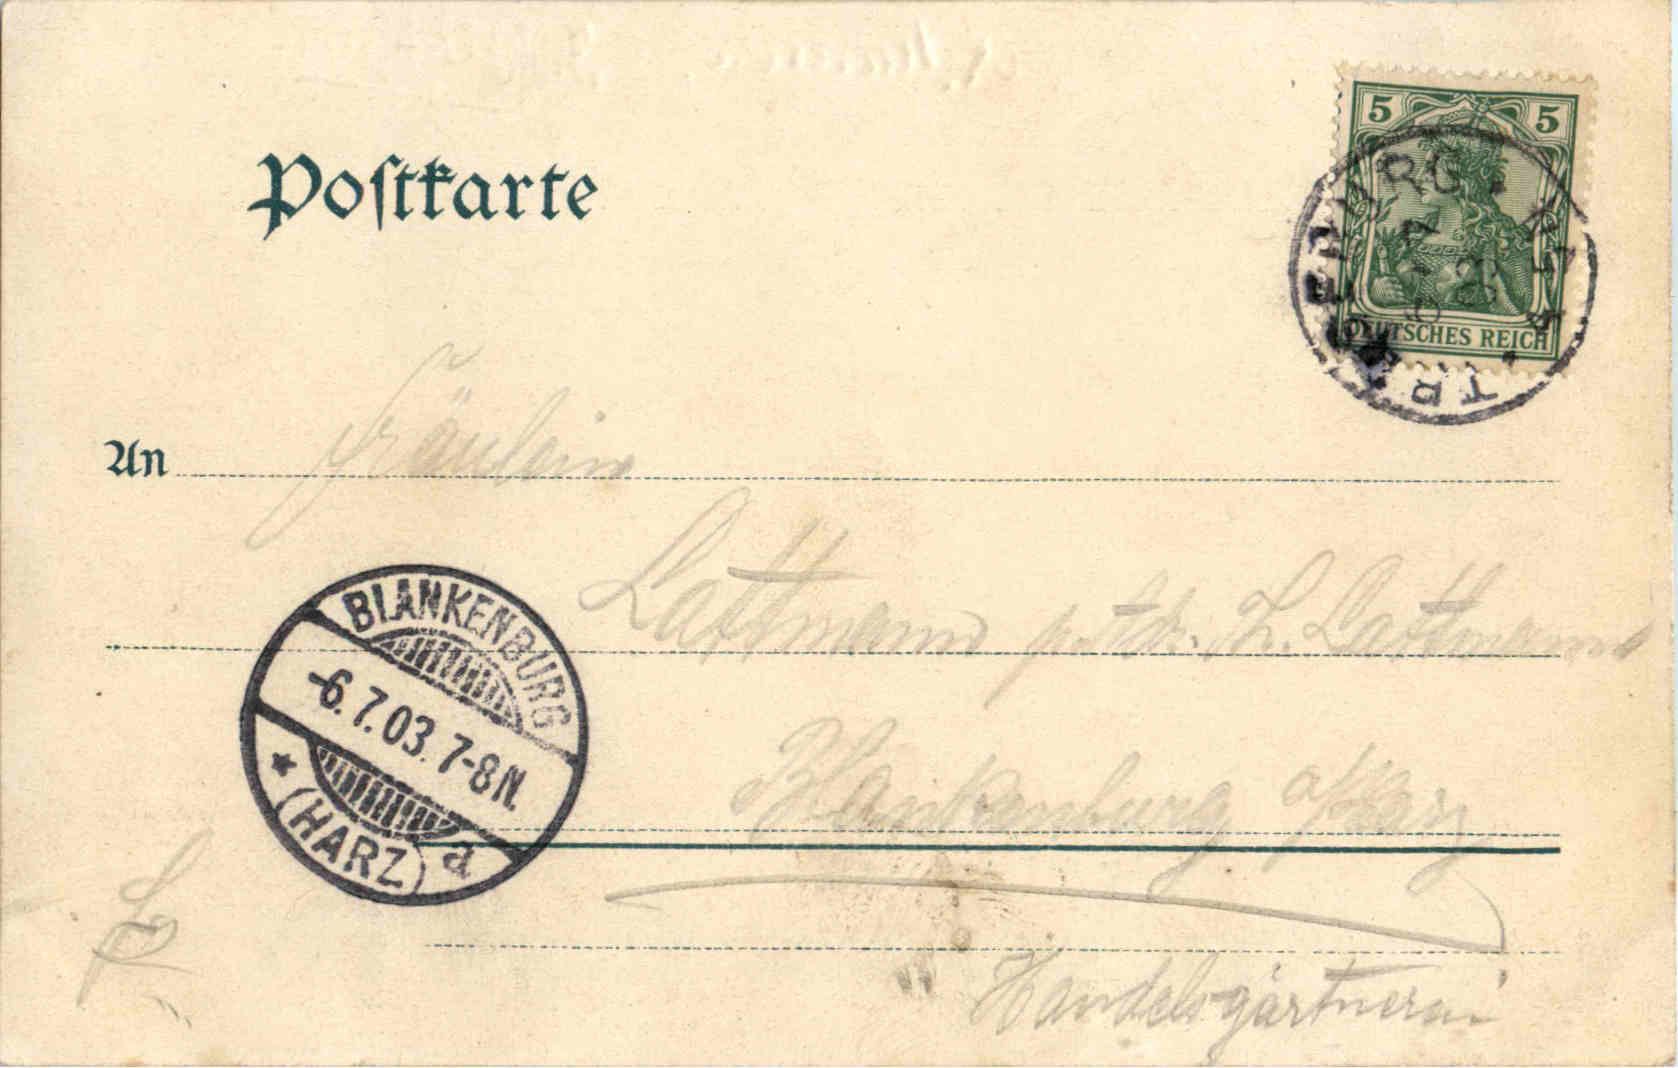 5 5
DEUTSCHES REICH
Postkarte
An Fräulein
Lattmann L. Lattmann
Blankenburg a/Harz
Handelsgärtnerei
BLANKENBURG
-6.7.03. 7-8N.
* (HARZ) a